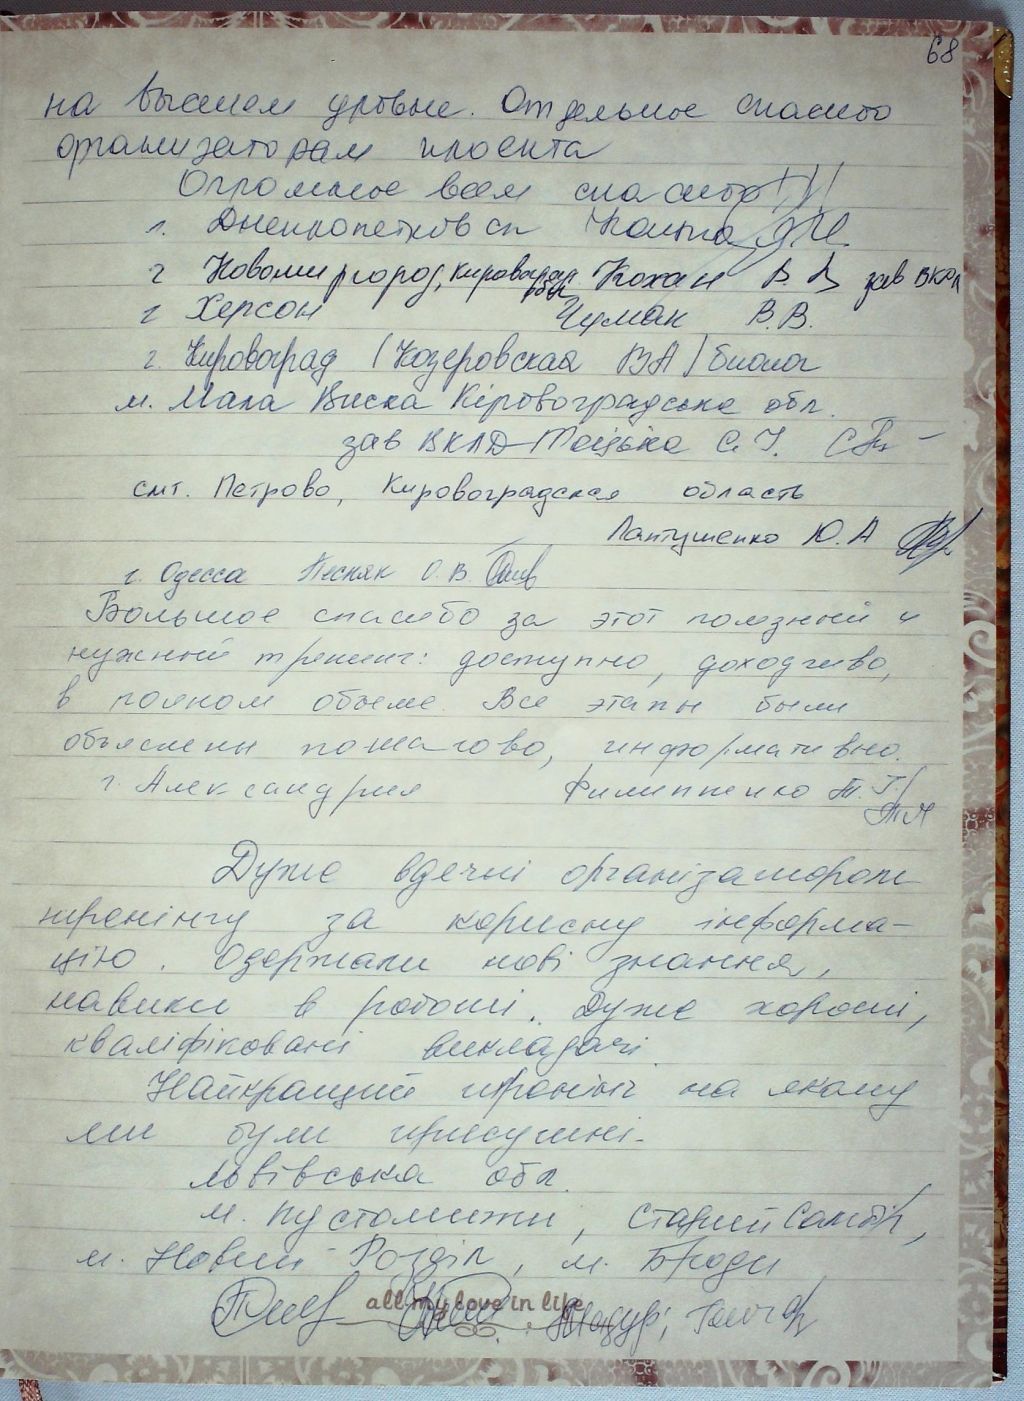 68
на высшем уровне. Отдельное спасибо
организаторам проекта
Огромное всем спасибо!!!
г. Днепропетровск
г Новомиргород, Кировоград обл Кохан В. В зав ВКРЛ
г Херсон Чумак В.В.
г. Кировоград (Козеровская ВА) биолог
м. Мала Виска Кіровоградське обл.
зав ВКЛД С. І.
смт. Петрово, Кировоградская область
Лантушенко Ю. А
г. Одесса Песняк О. В.
Большое спасибо за этот полезный и
нужный тренинг: доступно, доходчиво,
в полном объеме. Все этапы были
объяснены пошагово, информативно.
г. Александрия Филиппенко Т. Г.
Дуже вдячні організаторам
тренінгу за корисну інформа-
цію. Одержали нові знання,
навики в роботі. Дуже хороші,
кваліфіковані викладачі
Найкращий тренінг на якому
ми були присутні.
Львівська обл.
м. Пустомити, Старий Самбір,
м. Новий Розділ, м. Броди
all my love in life